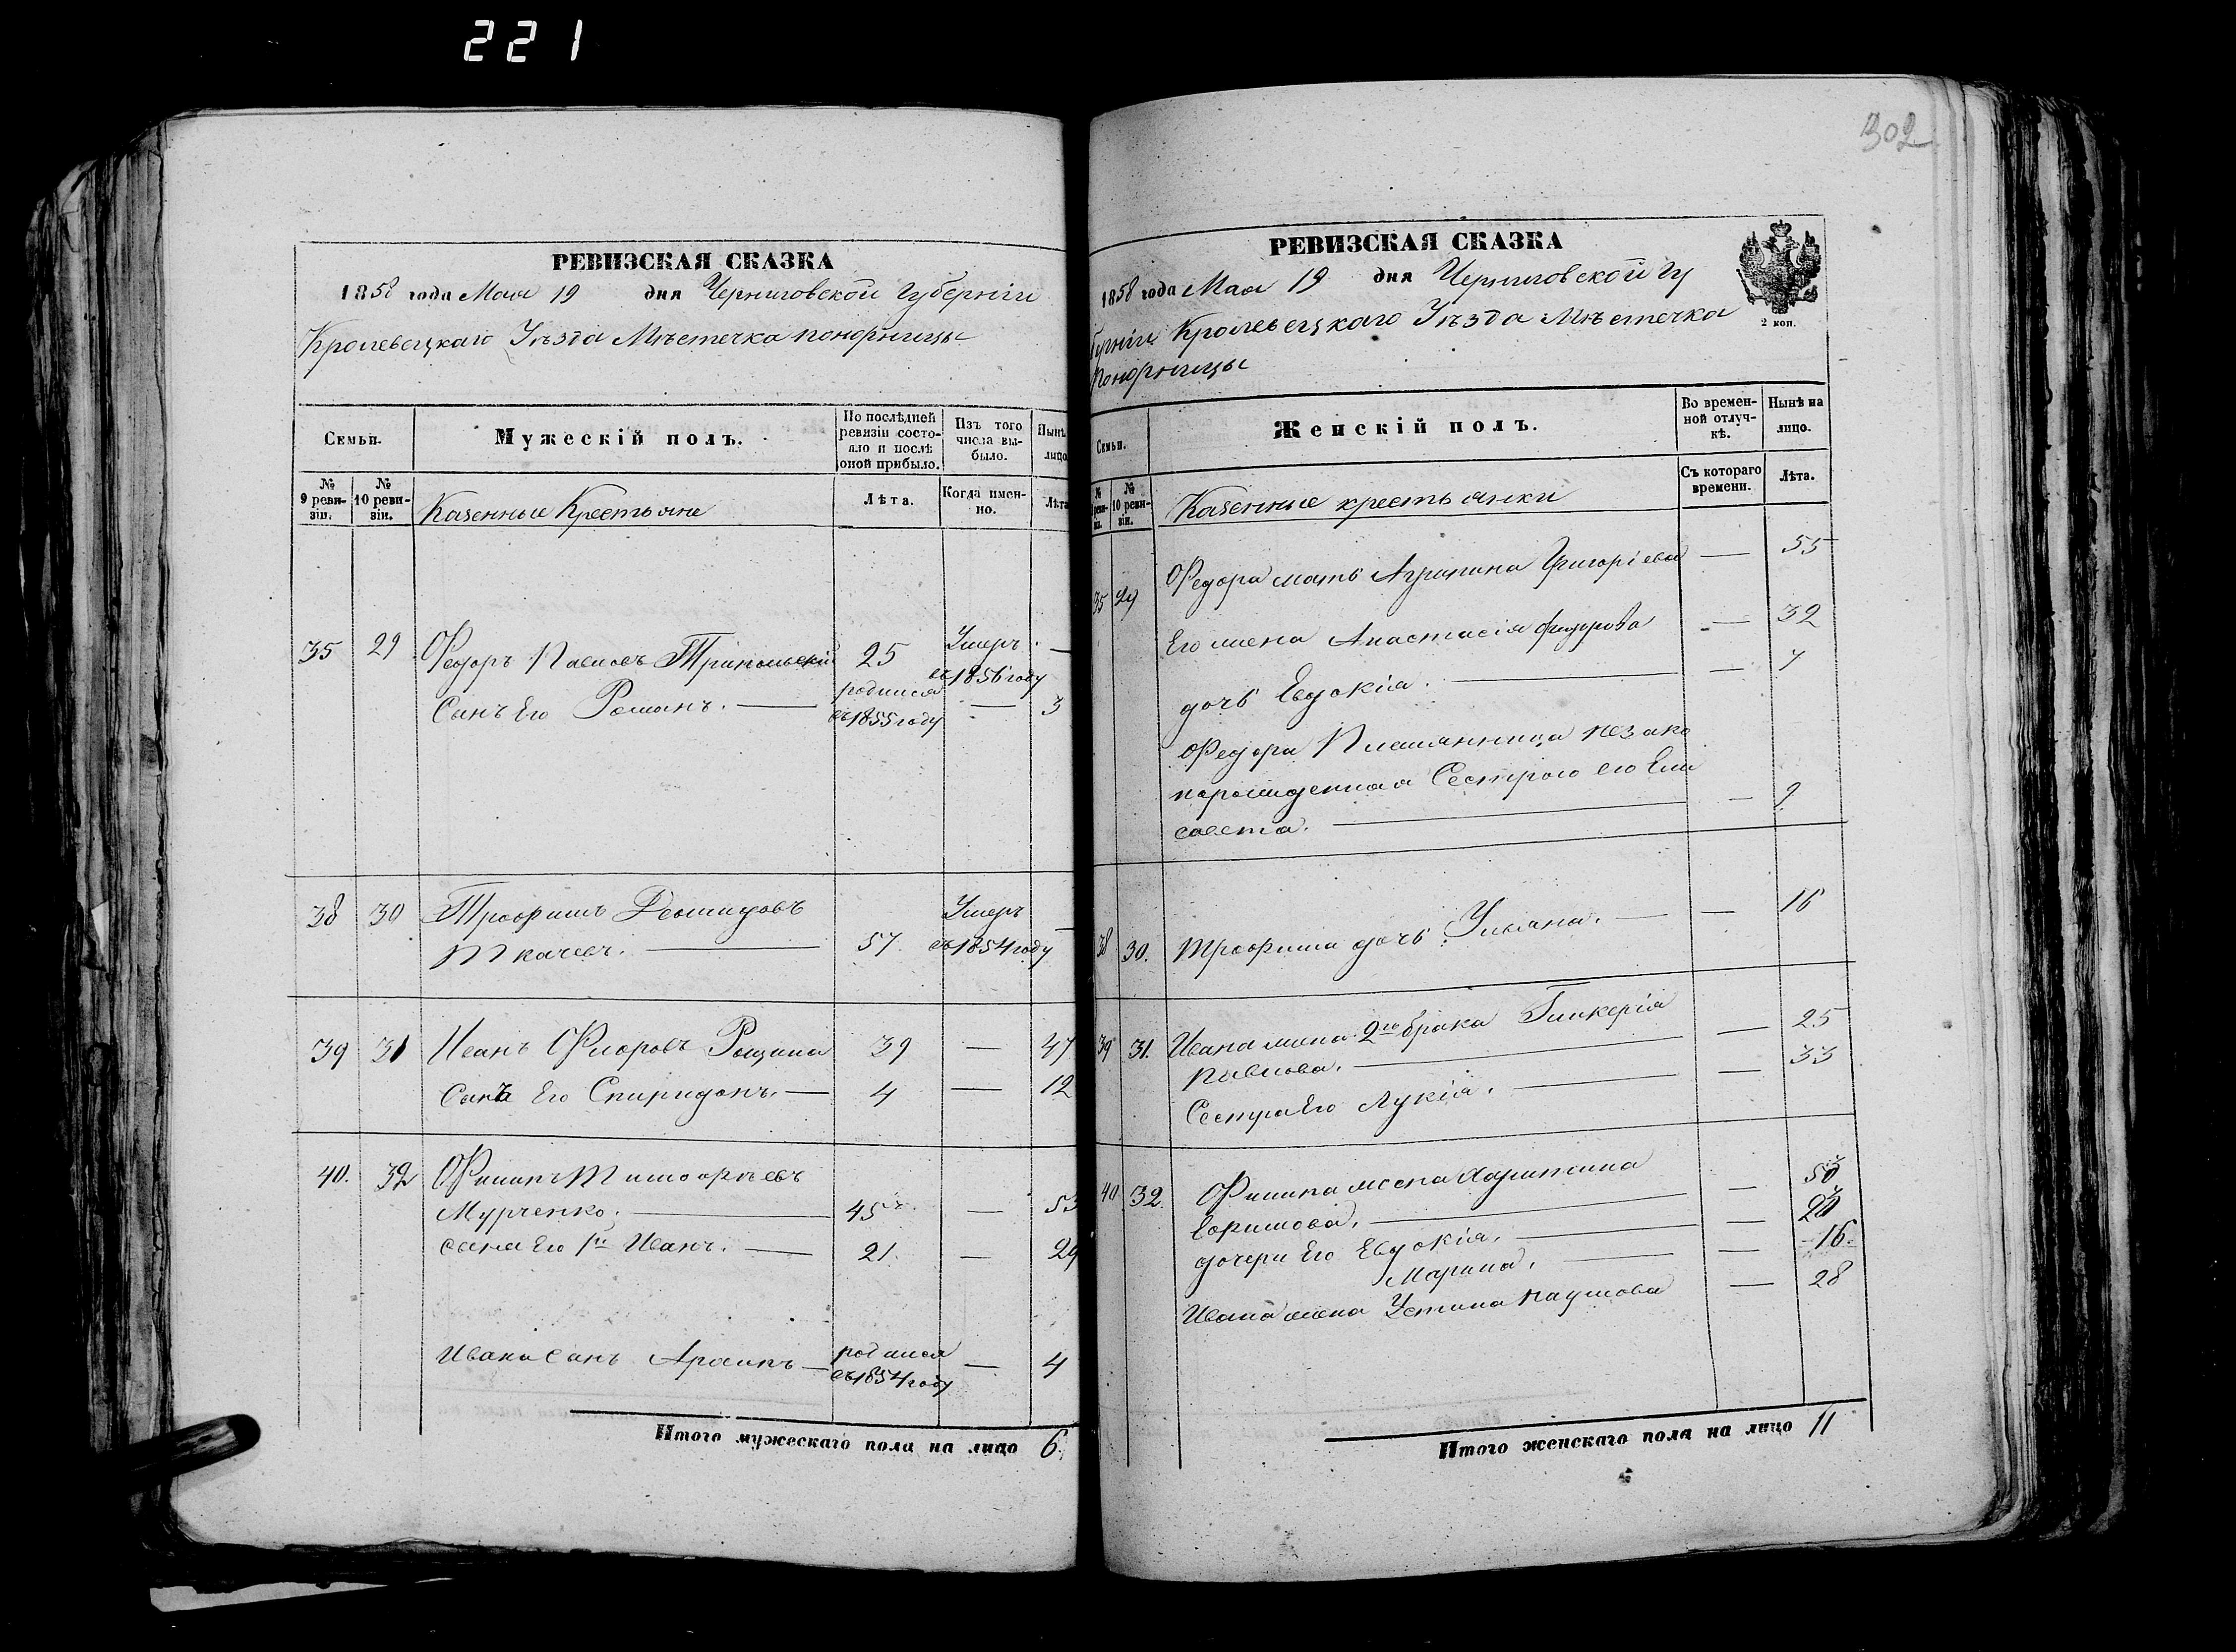 221
302
РЕВИЗСКАЯ СКАЗКА
1858 года Мая 19 дня Черниговской Губерніи
Кролевецкаго Уѣзда Мѣстечка Понорницы
Семьи.
Мужескій полъ.
По послѣдней ревизіи состояло и послѣ оной прибыло.
Изъ того числа выбыло.
Нынѣ лицо
№ 9 ревизіи.
№ 10 ревизіи.
Казенные Крестьяне
Лѣта.
Когда именно.
Лѣта
35 29 Федоръ Павловъ Трипольскій 25 Умеръ въ 1856 году —
Сынъ Его Романъ. — родился въ 1855 году — 3
38 30 Трофимъ Демидовъ
Ткачевъ. — 57. Умеръ въ 1854 году —
39 31 Иванъ Флоровъ Рощина 39 — 47
Сынъ Его Спиридонъ. — 4 — 12
40. 32 Филипъ Тимофѣевъ
Мурченко. — 45 — 53
сына Его 1й Иванъ. — 21. — 29
Ивана сынъ — родился въ 1854 году — 4
Итого мужескаго пола на лицо 6.
РЕВИЗСКАЯ СКАЗКА
1858 года Мая 19 дня Черниговской Гу
берніи Кролевецкаго Уѣзда Мѣстечка
Понорницы
2 коп.
Семьи.
Женскій полъ.
Во временной отлучкѣ.
Нынѣ на лицо.
№ 10 ревизіи.
Казенные крестьянки
Съ котораго времени.
Лѣта.
35 29 Федора мать Агрипина Григоріева — 55
Его жена Анастасія Федорова — 32
дочь Евдокія. — — 7
Федора Племянница незако
норожденная Сестрою его Ели
савета. — — 9
38 30. Трофима дочь Ульяна. — — 16
39 31. Ивана жена 2го брака Гликерія
Павлова. — — 25
Сестра Его Лукія. — — 33
40 32. Филипа жена Харитина
Ефимова. — — 50
дочери Его Евдокія. — — 20
Марина. — — 16.
Ивана жена Устина Наумова — 28
Итого женскаго пола на лицо 11